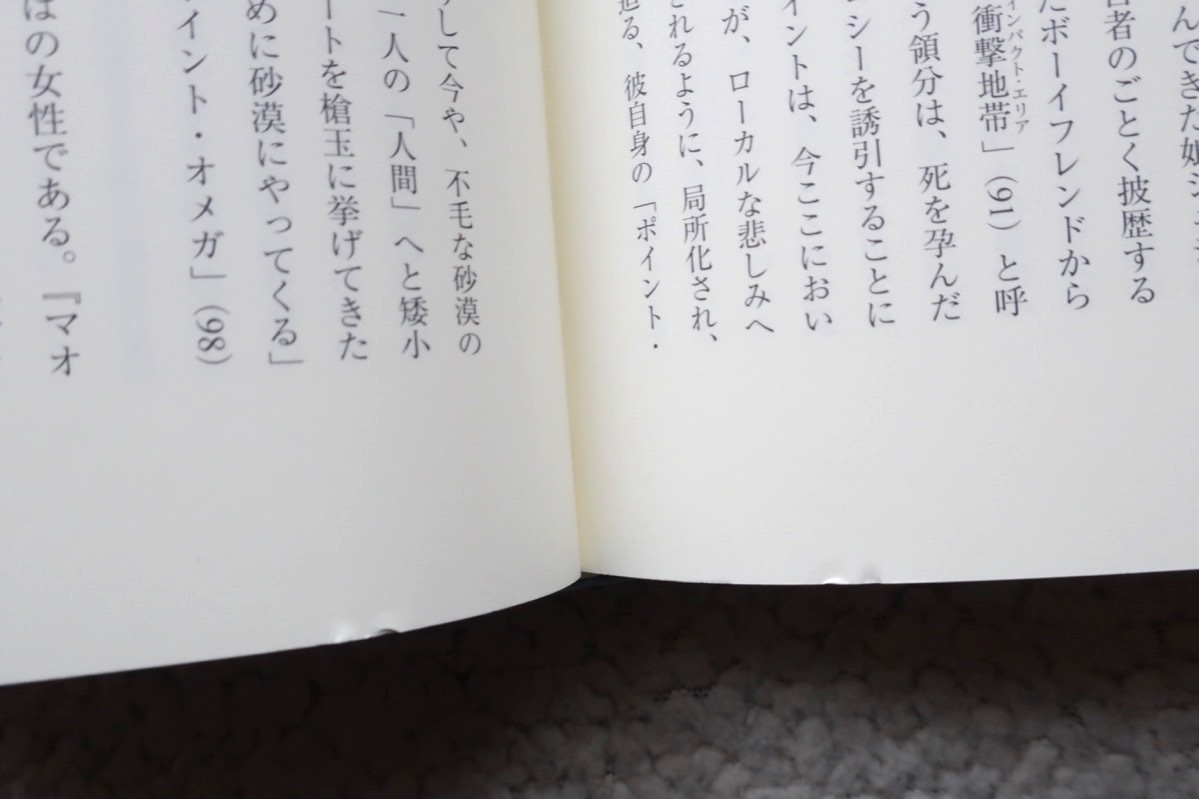 んできた娘ジ
者のごとく披歴する
たボーイフレンドから
衝撃地帯」（91）と呼
インパクト・エリア
う領分は、死を孕んだ
シーを誘引することに
イントは、今ここにおい
が、ローカルな悲しみへ
されるように、局所化され、
迫る、彼自身の「ポイント・
して今や、不毛な砂漠の
一人の「人間」へと矮小
ートを槍玉に挙げてきた
めに砂漠にやってくる」
イント・オメガ」（98）
の女性である。『マオ